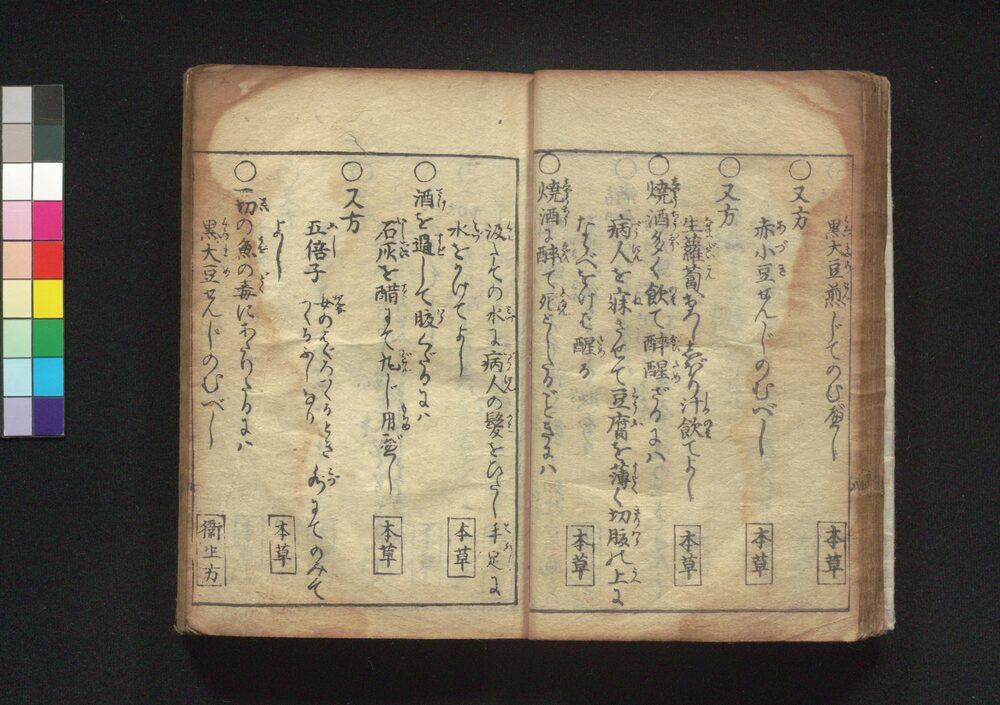 黒大豆煎じてのむべし 本草
○又方
赤小豆せんじのむべし 本草
○又方
生蘿蔔おろししぼり汁飲てよし 本草
○焼酒多く飲て酔醒ざるには
病人を寐させて豆腐を薄く切腹の上に
ならべをけば醒る 本草
○焼酒に酔て死どしたるごときには
汲たての水に病人の髪をひたし手足に
水をかけてよし 本草
○酒を過して腹くだるには
石灰を醋にて丸じ用べし 本草
○又方
五倍子 女のはぐろつくるときつくるふしなり 水にてのみて
よし 本草
○一切の魚の毒にあたりたるには
黒大豆せんじのむべし 衛生方